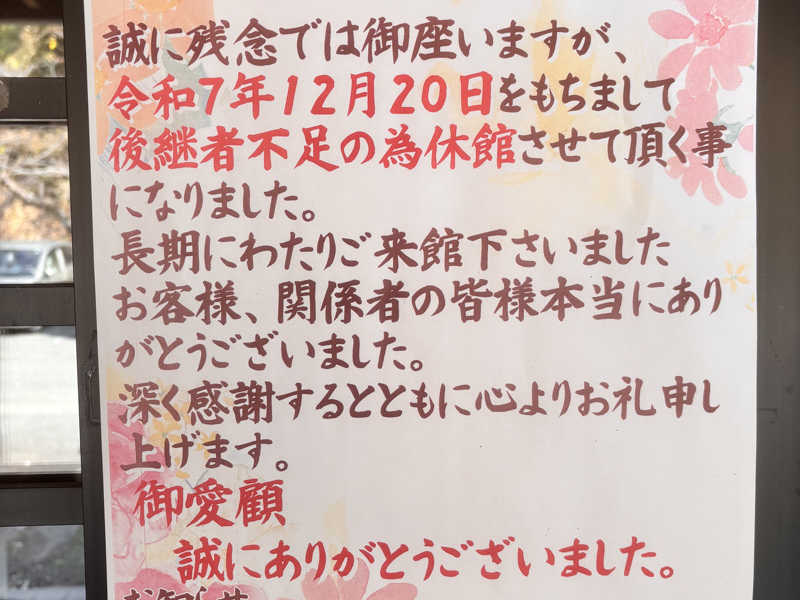 誠に残念では御座いますが、
令和7年12月20日をもちまして
後継者不足の為休館させて頂く事
になりました。
長期にわたりご来館下さいました
お客様、関係者の皆様本当にあり
がとうございました。
深く感謝するとともに心よりお礼申し
上げます。
御愛顧
誠にありがとうございました。